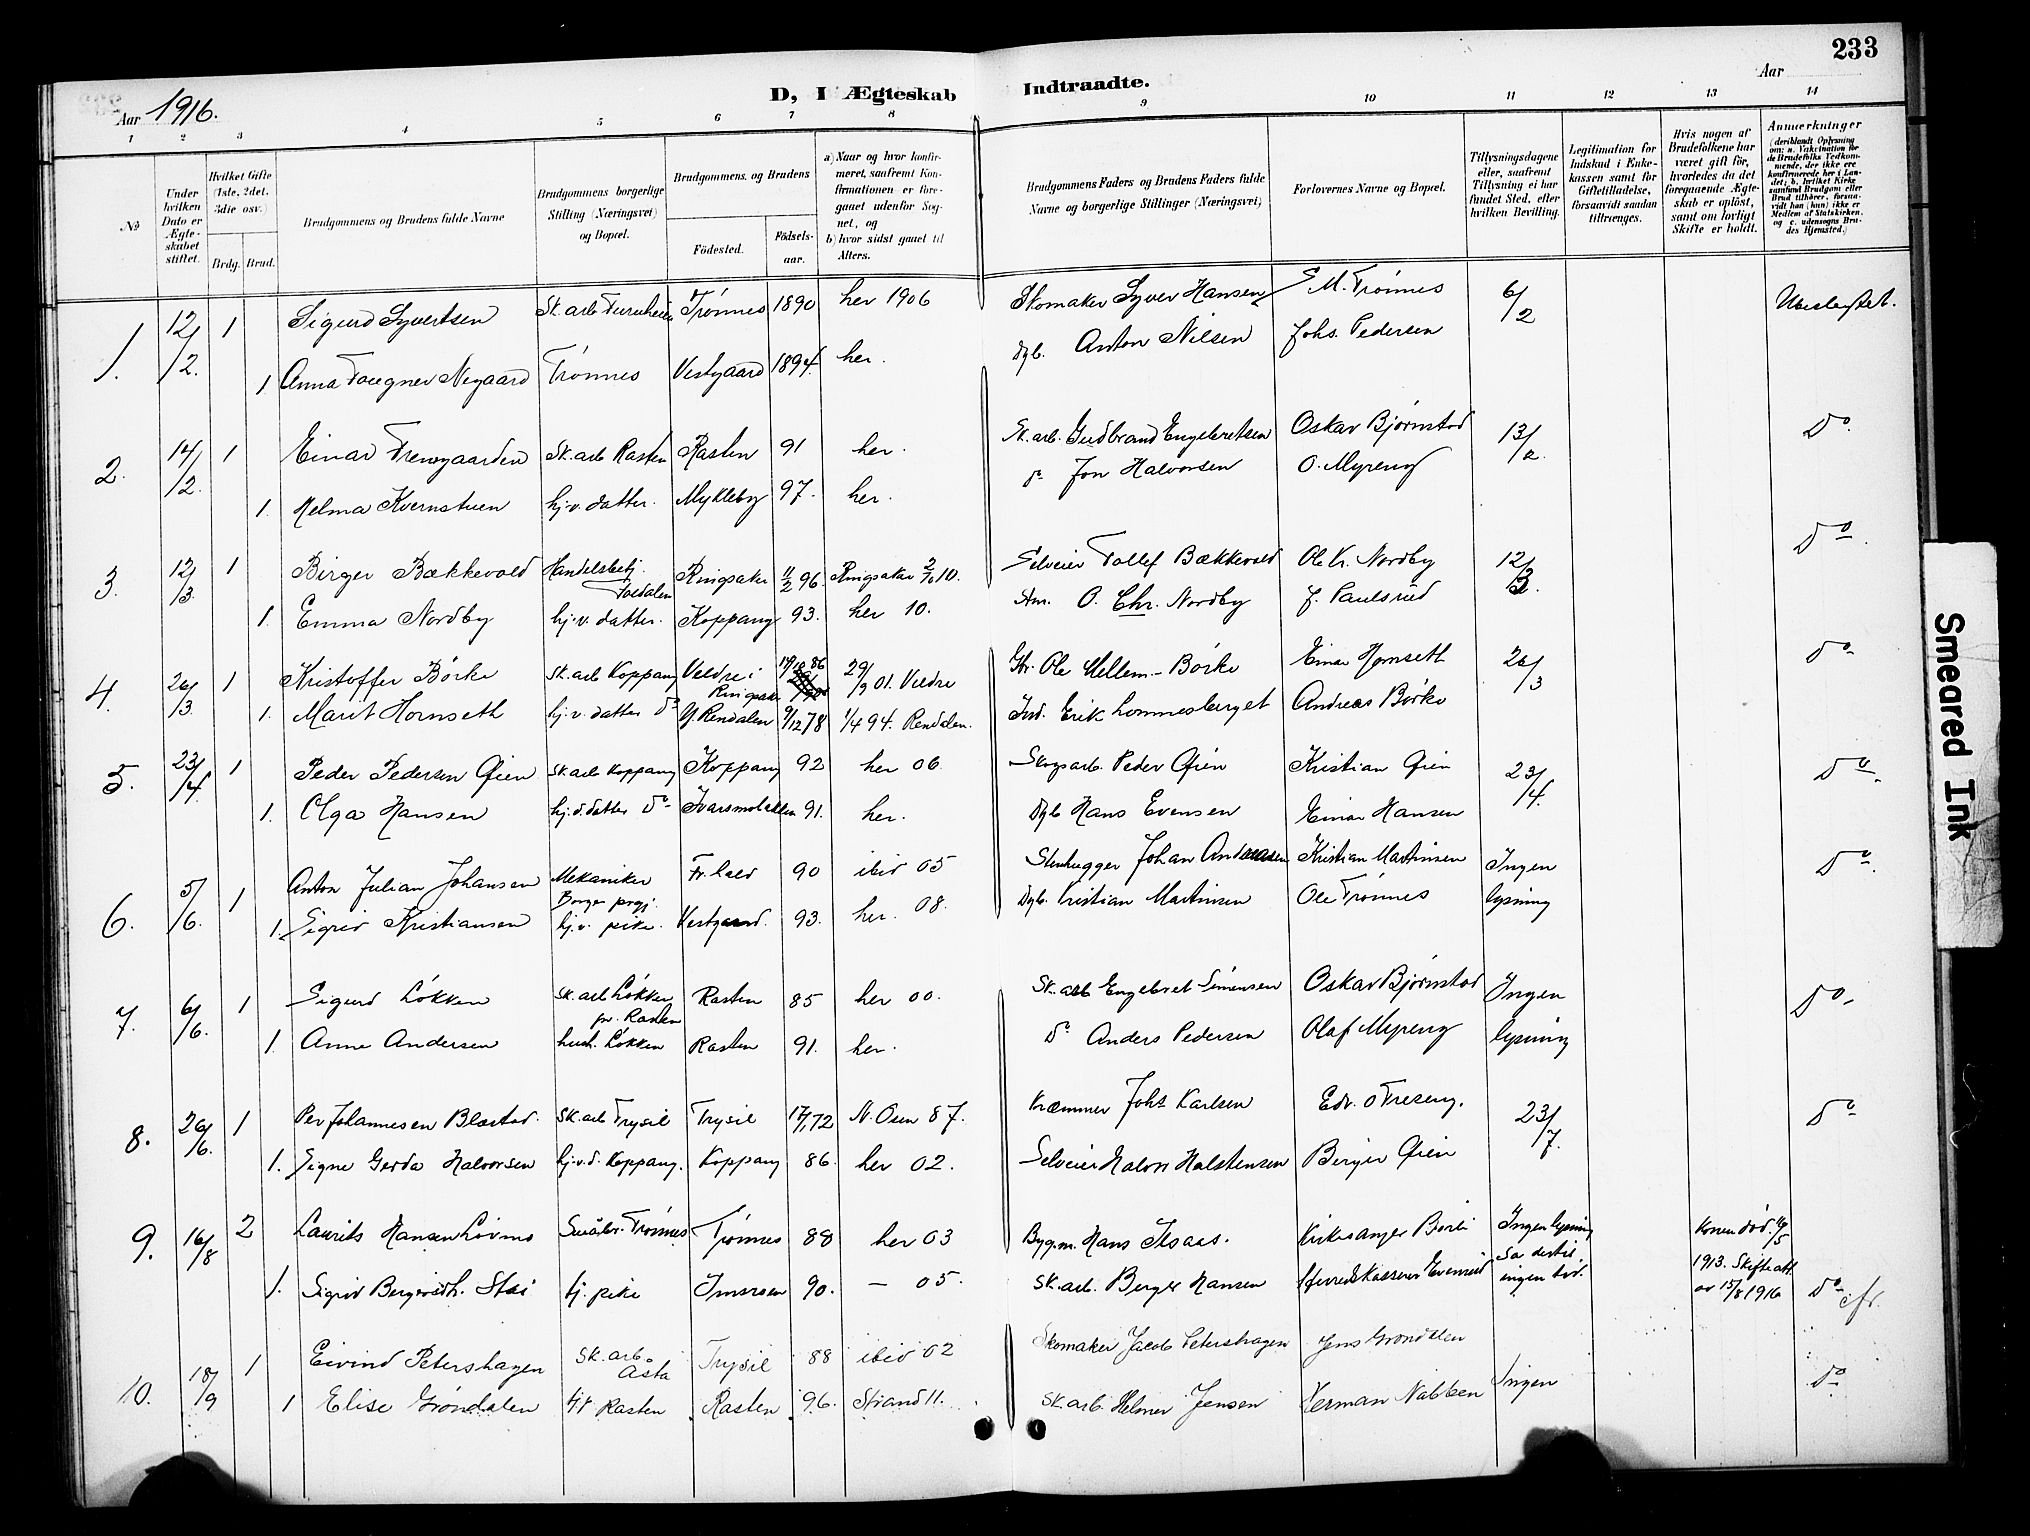 233
D, I Ægteskab Indtraadte.
Aar 1916. Aar
1 2 3 4 5 6 7 8 9 10 11 12 13 14
№
Under hvilken Dato er Ægteskabet stiftet.
Hvilket Gifte (1ste, 2det, 3die osv.)
Brdg. Brud.
Brudgommens og Brudens fulde Navne
Brudgommens borgerlige Stilling (Næringsvei) og Bopæl.
Brudgommens og Brudens
Födested. Födselsaar.
a) Naar og hvor konfirmeret, saafremt Konfirmationen er foregaaet udenfor Sognet, og
b) hvor sidst gaaet til Alters.
Brudgommens Faders og Brudens Faders fulde Navne og borgerlige Stillinger (Næringsvei)
Forlovernes Navne og Bopæl.
Tillysningsdagene eller, saafremt Tillysning ei har fundet Sted, efter hvilken Bevilling.
Legitimation for Indskud i Enkekassen samt for Giftetilladelse, forsaavidt saadan tiltrænges.
Hvis nogen af Brudefolkene har været gift för, hvorledes da det foregaaende Ægteskab er oplöst, samt om lovligt Skifte er holdt.
Anmerkninger
(deriblandt Oplysning om: a. Vakcination for de Brudefolks Vedkommende, der ikke ere konfirmerede her i Landet; b. hvilket Kirkesamfund Brudgom eller Brud tilhörer, forsaavidt han (hun) ikke er Medlem af Statskirken, og c. udensogns Brudes Hjemsted.)
1. 12/2. 1 Sigurd Syvertsen Sk. arb. Furuheim Trönnes 1890 her 1906 Skomaker Syver Hansen E. M. Trönnes 6/2 Ubeslegtet.
1 Anna Negaard Trönnes Vestgaard 1894. her. Dgb. Anton Nilsen Johs. Pedersen
2. 14/2. 1 Einar Trengaarden Sk. arb Rasten Rasten 91 her. Sk. arb. Gudbrand Engebretsen Oskar Bjørnstad 13/2. Do
1. Helma Kvernstuen hj. v. datter. Mykleby 97. her. do Jon Halvorsen O. Myreng
3. 12/3. 1 Birger Bækkevold Handelsbetj. Foldalen Ringsaker 11/2 96 Ringsaker 2/10 10. Selveier Tollef Bækkevold Ole K. Nordby 12/3. Do.
1. Emma Nordby hj. v. datter. Koppang 93. her 10. O. Chr. Nordby J. Paulsrud
4. 26/3. 1 Kristoffer Börke Sk. arb Koppang Veldre i Ringsaker 86 29/9 01. Veldre Gbr. Ole Mellem-Börke Einar Hornseth 26/3 Do
1. Marit Hornseth hj. v. datter Do Y. Rendalen 9/12 78 1/4 94. Rendalen. Ind. Erik Lommesberget Andreas Börke
5. 23/4. 1 Peder Pedersen Öien Sk. arb Koppang Koppang 92 her 06 Skogsarb. Peder Öien Kristian Öien 23/4. Do
1. Olga Hansen hj. v. datter Do Ivarsmobakken 91. her. Dgb Hans Evensen Einar Hansen
6. 5/6. 1 Anton Julian Johansen Mekaniker Borge prgj. Fr. hald 90 ibid 05 Stenhugger Johan Andreasen Kristian Martinsen Ingen lysning Do
1. Sigrid Kristiansen hj. v. pike. Vestgaard. 93. her. 08. Dgb. Kristian Martinsen Ole Trönnes
7. 6/6. 1 Sigurd Lökken Sk. arb Lökken pr. Rasten Rasten 85 her 00. Sk. arb Engebret Simensen Oskar Bjørnstad Ingen lysning Do
1. Anne Andersen hush. Lökken Rasten 91. her. Do Anders Pedersen Olaf Myreng
8. 26/6. 1 Per Johannesen Blæstad. Sk. arb Trysil Trysil 17/1 72 N. Osen 87. Kræmmer Johs Karlsen Edv. Otreseng. 23/7. Do
1. Signe Gerda Halvorsen hj. v. d. Koppang. Koppang 86. her 02. Selveier Halvor Halstensen Berger Öien
9. 16/8 2 Laurits Hansen Lövmo Trönnes Trönnes 88 her 03 Bygm. Hans Isaas. Kirkesanger Berli Ingen lysning da dertil ingen tid. Konen död. 16/5 1913. Skifteatt. av 15/8 1916 Do cfr.
1. Sigrid Bergersdh. Stai hj. pike Imsroen 90. — 05. Sk. arb. Berger Hansen Herredskasserer Evensæd
10. 18/9 1 Eivind Petershagen Sk. arb. Asta Trysil 88 ibid 02 Skomaker Jacob Petershagen Jens Gröndalen Ingen Do
1 Elise Gröndalen Rasten Rasten 96. Strand 11. Sk. arb. Helmer Jensen Herman Nabben
Smeared Ink